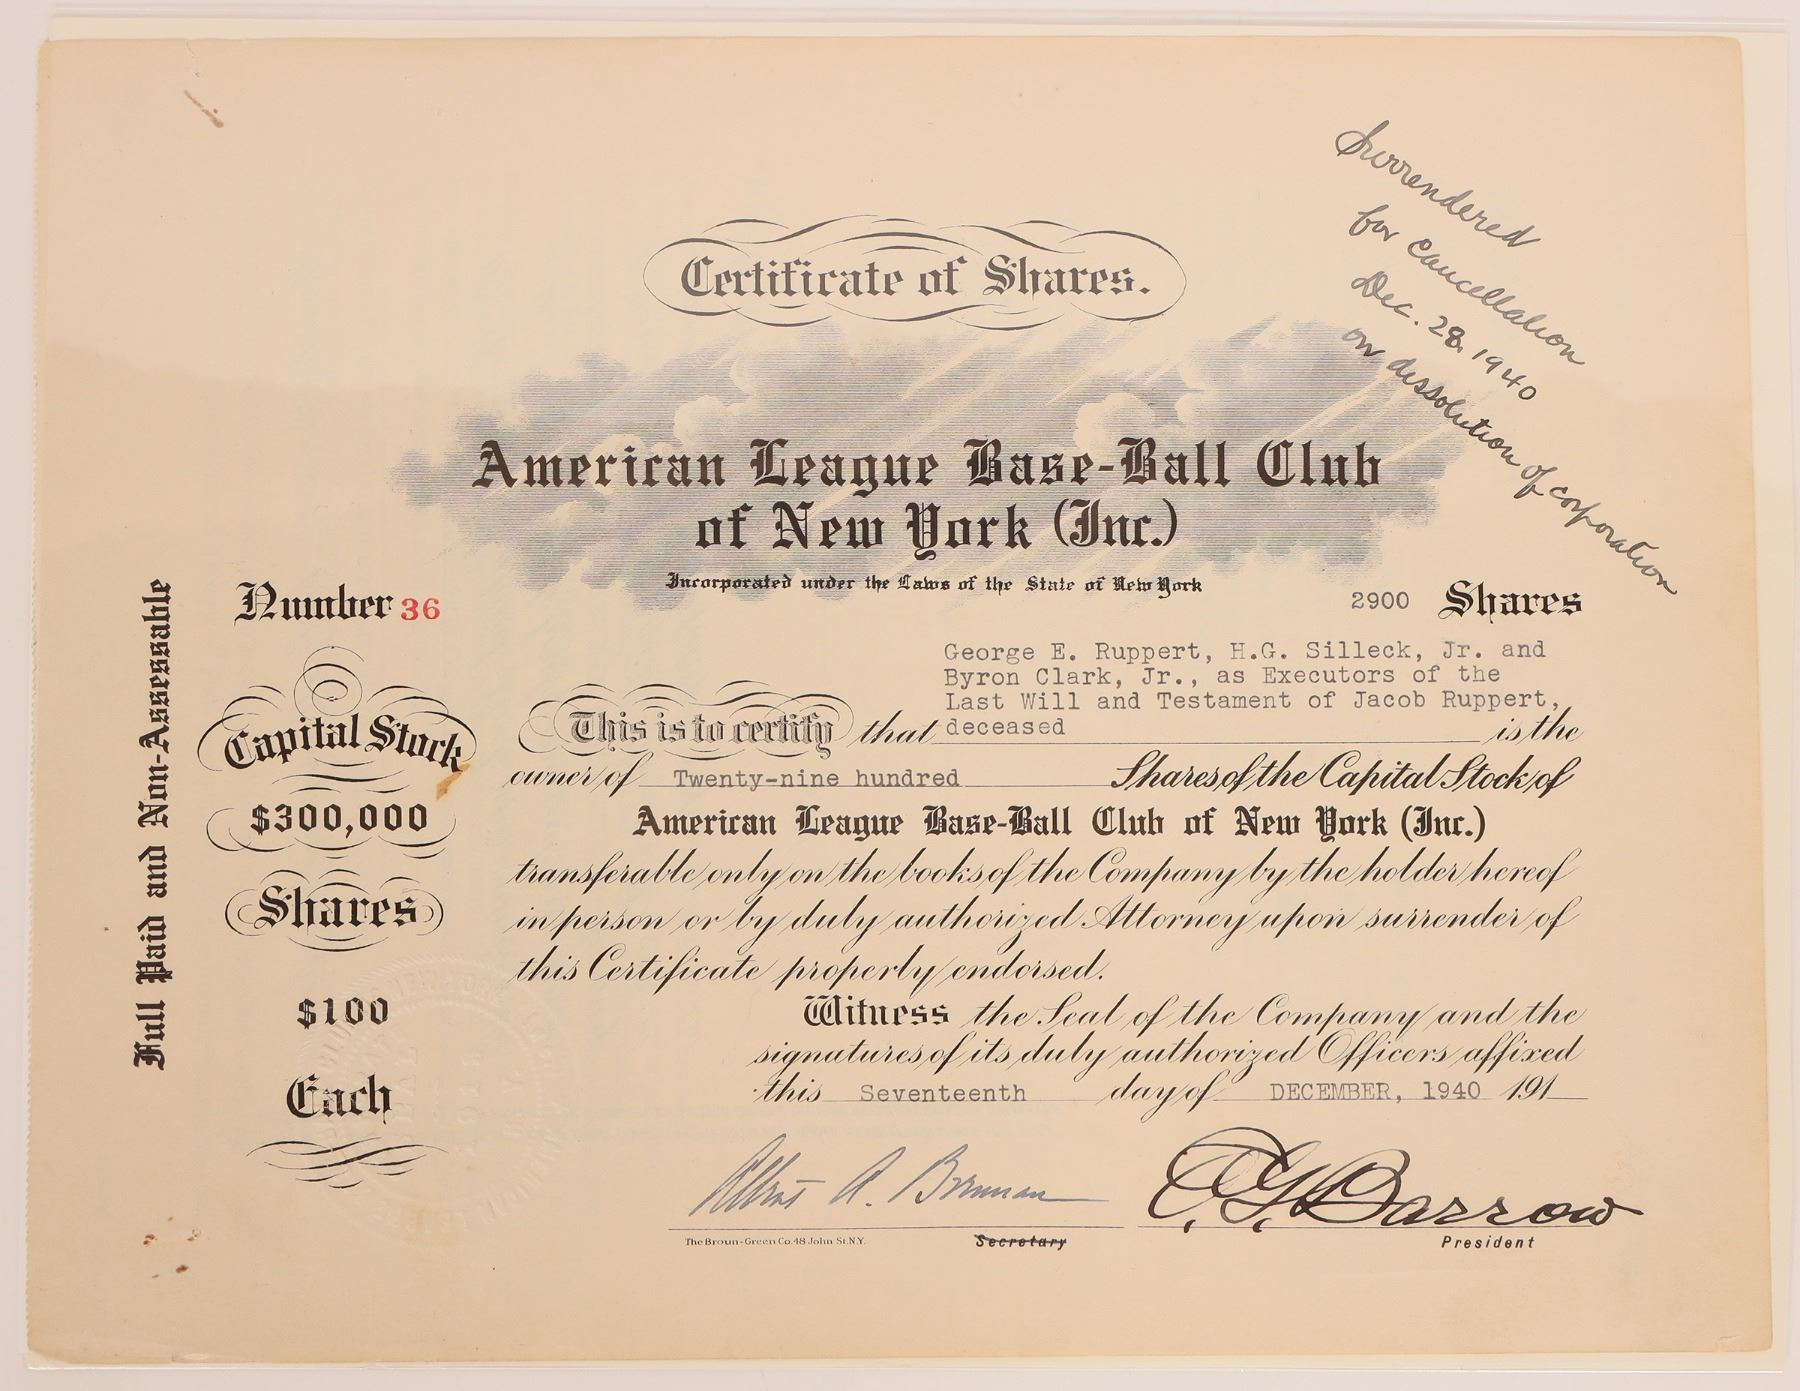 Surrendered
for cancellation
Dec. 28, 1940
on dissolution of corporation
Certificate of Shares.
American League Base-Ball Club
of New York (Inc.)
Incorporated under the Laws of the State of New York
Number 36
2900 Shares
Full Paid and Non-Assessable
Capital Stock
$300,000
Shares
$100
Each
George E. Ruppert, H.G. Silleck, Jr. and
Byron Clark, Jr., as Executors of the
Last Will and Testament of Jacob Ruppert,
This is to certify that deceased is the
owner of Twenty-nine hundred Shares of the Capital Stock of
American League Base-Ball Club of New York (Inc.)
transferable only on the books of the Company by the holder hereof
in person or by duly authorized Attorney upon surrender of
this Certificate properly endorsed.
Witness the Seal of the Company and the
signatures of its duly authorized Officers affixed
this Seventeenth day of DECEMBER, 1940 191
Albert A. Brennan E.G. Barrow
The Broun-Green Co. 48 John St. N.Y. Secretary President